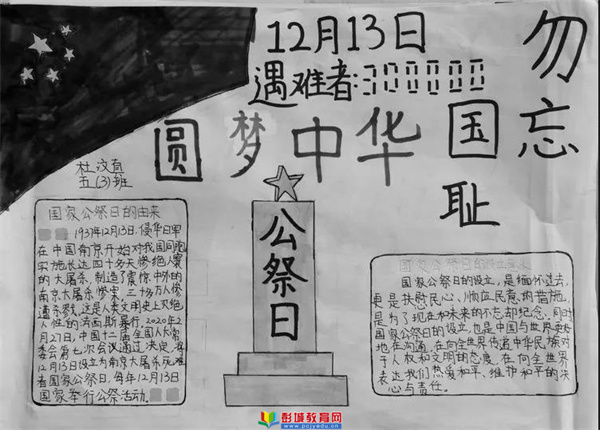 12月13日
遇难者:300000
勿忘
国耻
圆梦中华
杜汶真
五(3)班
公祭日
国家公祭日的由来
1937年12月13日,侵华日军
在中国南京开始对我国同胞
实施长达四十多天惨绝人寰
的大屠杀,制造了震惊中外的
南京大屠杀惨案,三十多万人惨
遭杀戮,这是人类文明史上灭绝
人性的法西斯暴行.2020年2
月27日,中国十二届全国人大常
委会第七次会议通过决定,将
12月13日设立为南京大屠杀死难
者国家公祭日,每年12月13日
国家举行公祭活动。
国家公祭日的
国家公祭日的设立,是缅怀过去,
更是抚慰民心、顺应民意的措施,
是为了现在和未来的不忘却纪念,同时
国家公祭日的设立,也是中国与世界更好
地在沟通,在向全世界传递中华民族对
于人权和文明的态度,在向全世界
表达我们热爱和平、维护和平的决
心与责任。
彭城教育网
www.pcjyedu.cn